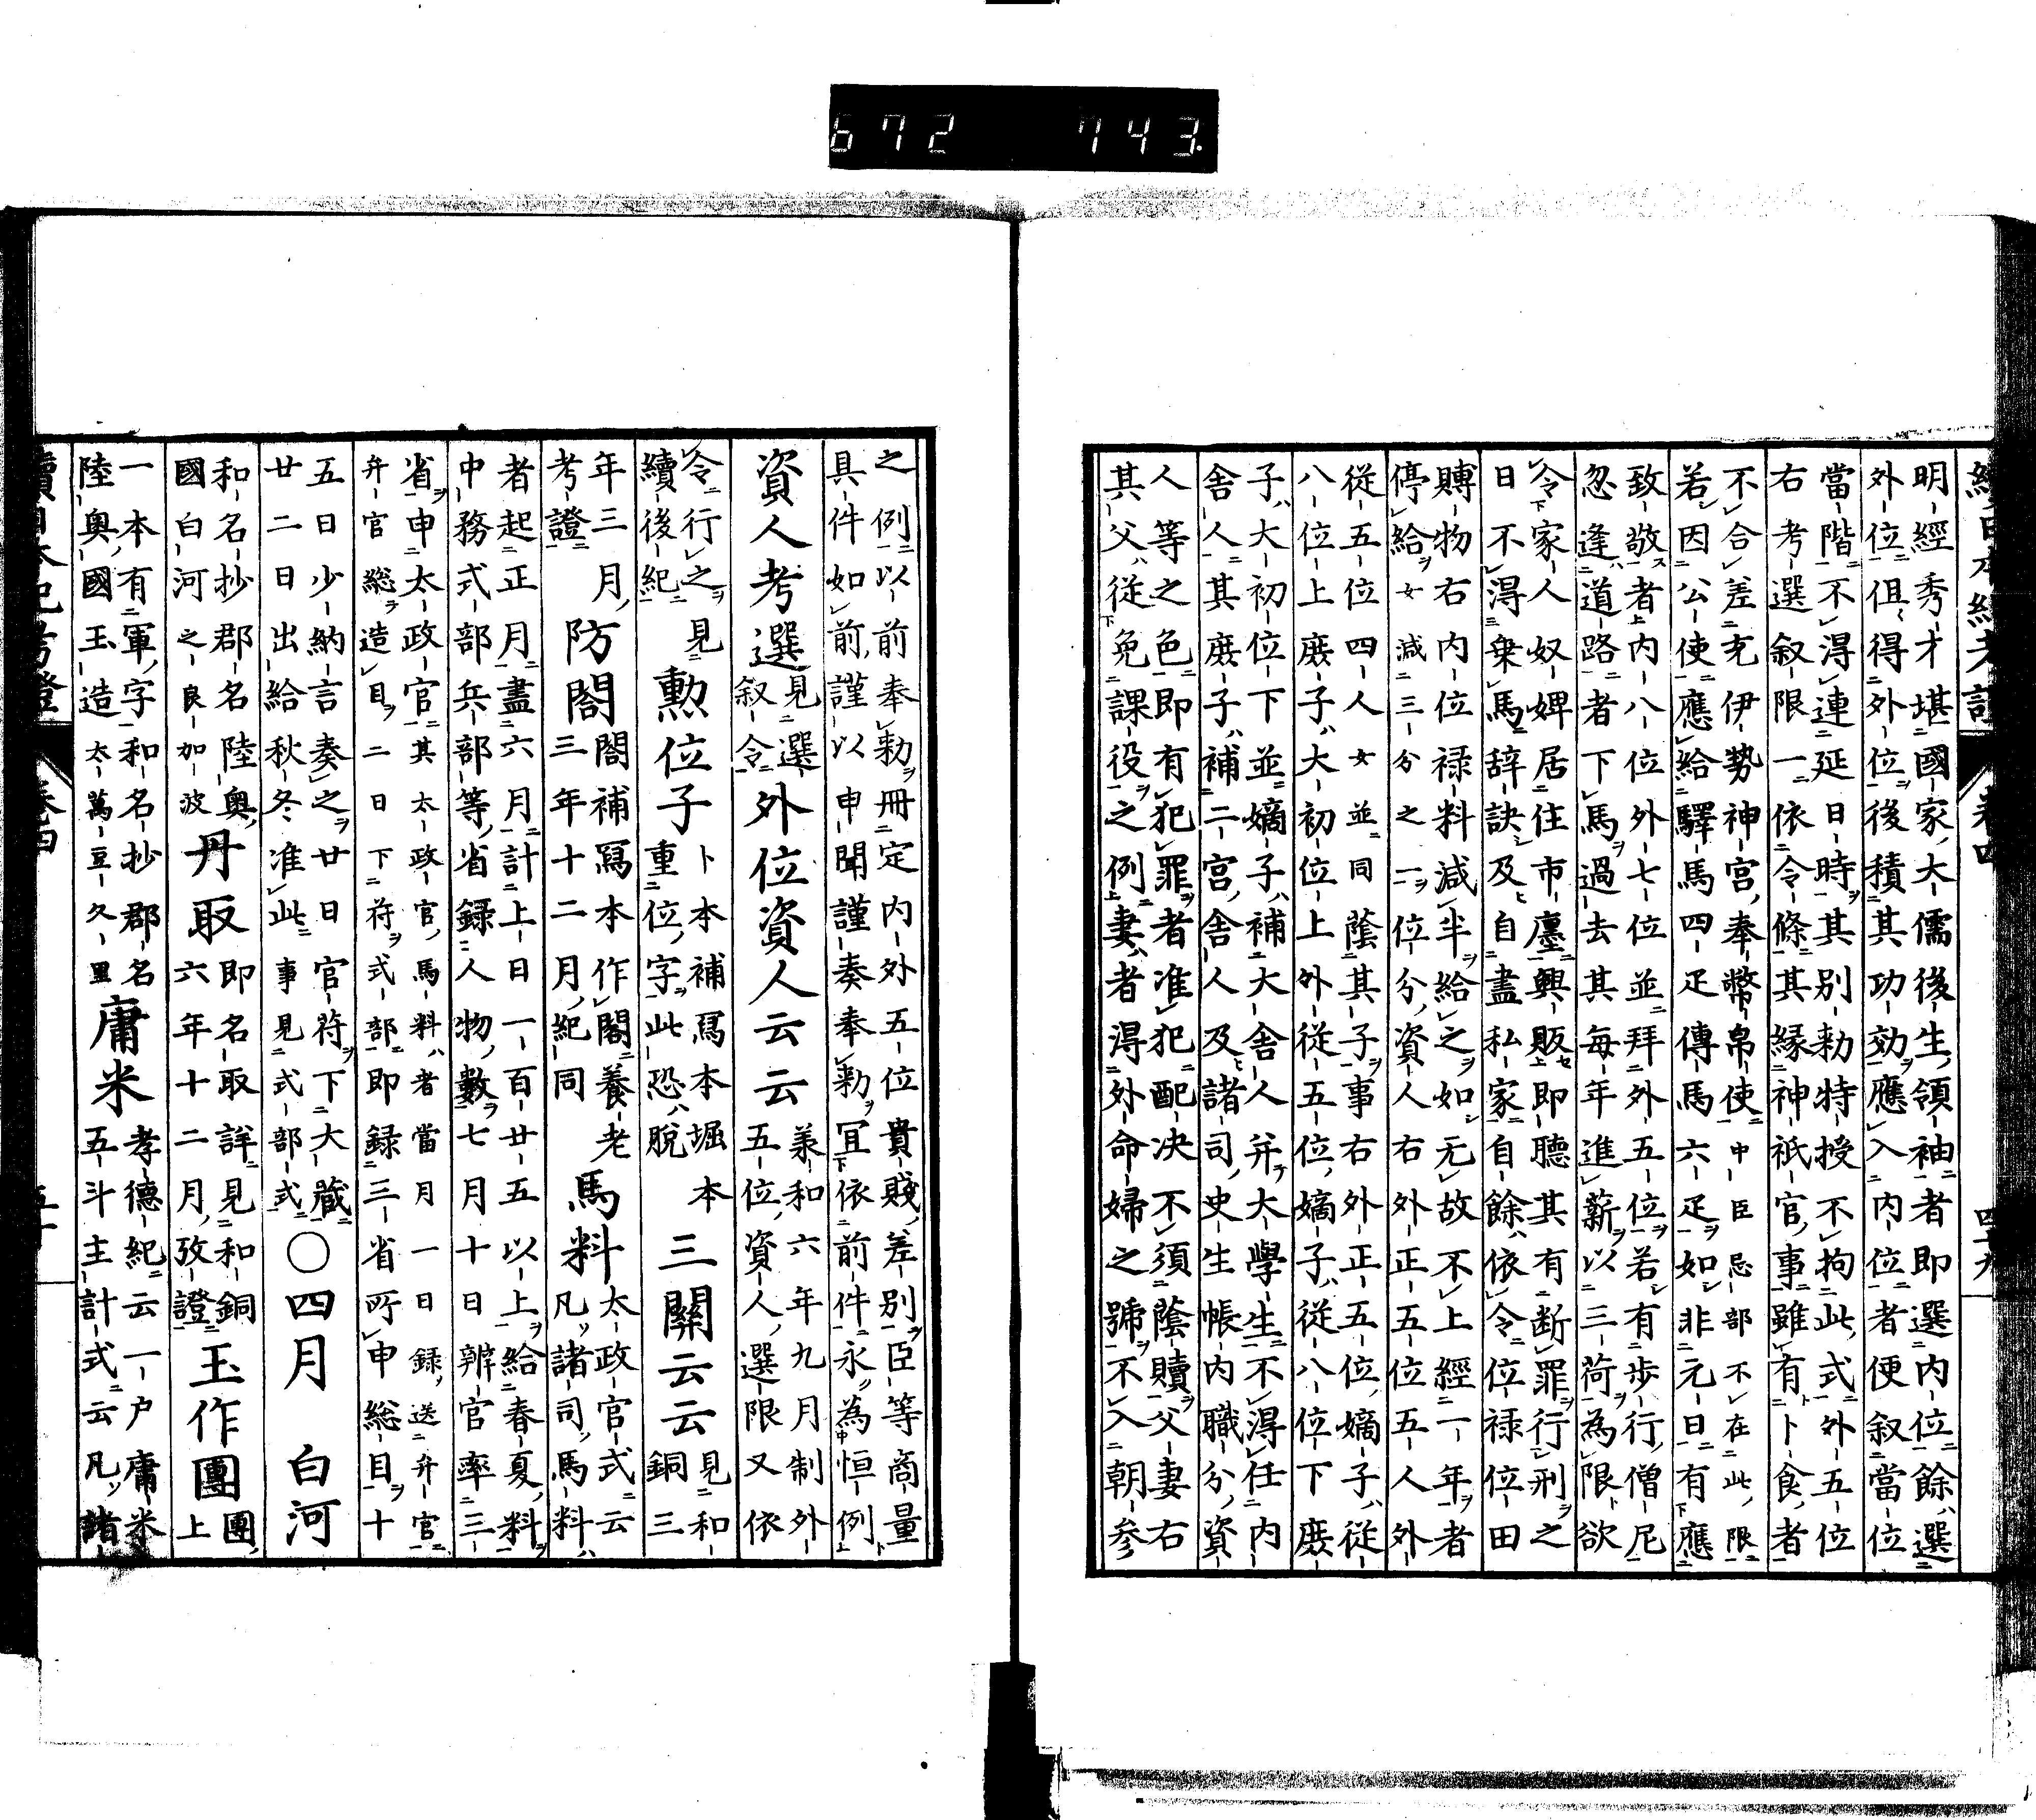 672 743.
續日本紀考證 卷四 四十九
明經秀才堪國家大儒後生領袖者即選内位餘選
外位但得外位後積其功効應入内位者便叙當位
當階不得連延日時其別勅特授不拘此式外五位
右考選叙限一依令條其緣神祇官事雖有卜食者
不合差充伊勢神宮奉幣帛使中臣忌部不在此限
若因公使應給驛馬四疋傳馬六疋如非元日有應
致敬者内八位外七位並拜外五位若有歩行僧尼
忽逢道路者下馬過去其每年進薪以三荷為限欲
令家人奴婢居住市廛興販即聽其有断罪行刑之
日不得乗馬辞訣及自盡私家自餘依令位禄位田
賻物右内位禄料減半給之如无故不上經一年者
停給女減三分之一位分資人右外正五位五人外
從五位四人女並同蔭其子事右外正五位嫡子從
八位上庶子大初位上外從五位嫡子從八位下庶
子大初位下並嫡子補大舎人并大學生不得任内
舎人其庶子補二宮舎人及諸司史生帳内職分資
人等之色即有犯罪者准犯配决不須蔭贖父妻右
其父從免課役之例妻者得外命婦之號不入朝参
之例以前奉勅冊定内外五位貴賤差別臣等商量
具件如前謹以申聞謹奏奉勅冝依前件永為恒例
資人考選見選叙令外位資人云云羕和六年九月制外五位資人選限又依
令行之見續後紀勲位子卜本補冩本堀本重位字此恐脫三關云云見和銅三
年三月考證防閤閤補冩本作閣養老三年十二月紀同馬料太政官式云凡諸司馬料
者起正月盡六月計上日一百廿五以上給春夏料
中務式部兵部等省録人物數七月十日辨官率三
省申太政官其太政官馬料者當月一日録送弁官
弁官総造目二日下符式部即録三省所申総目十
五日少納言奏之廿日官符下大藏
廿二日出給秋冬准此事見式部式〇四月 白河
和名抄郡名陸奥國白河之良加波丹取即名取詳見和銅六年十二月攷證玉作團團上
一本有軍字和名抄郡名陸奥國玉造太萬豆久里庸米孝德紀云一户庸米五斗主計式云凡諸
續日本紀考證 卷四 五十